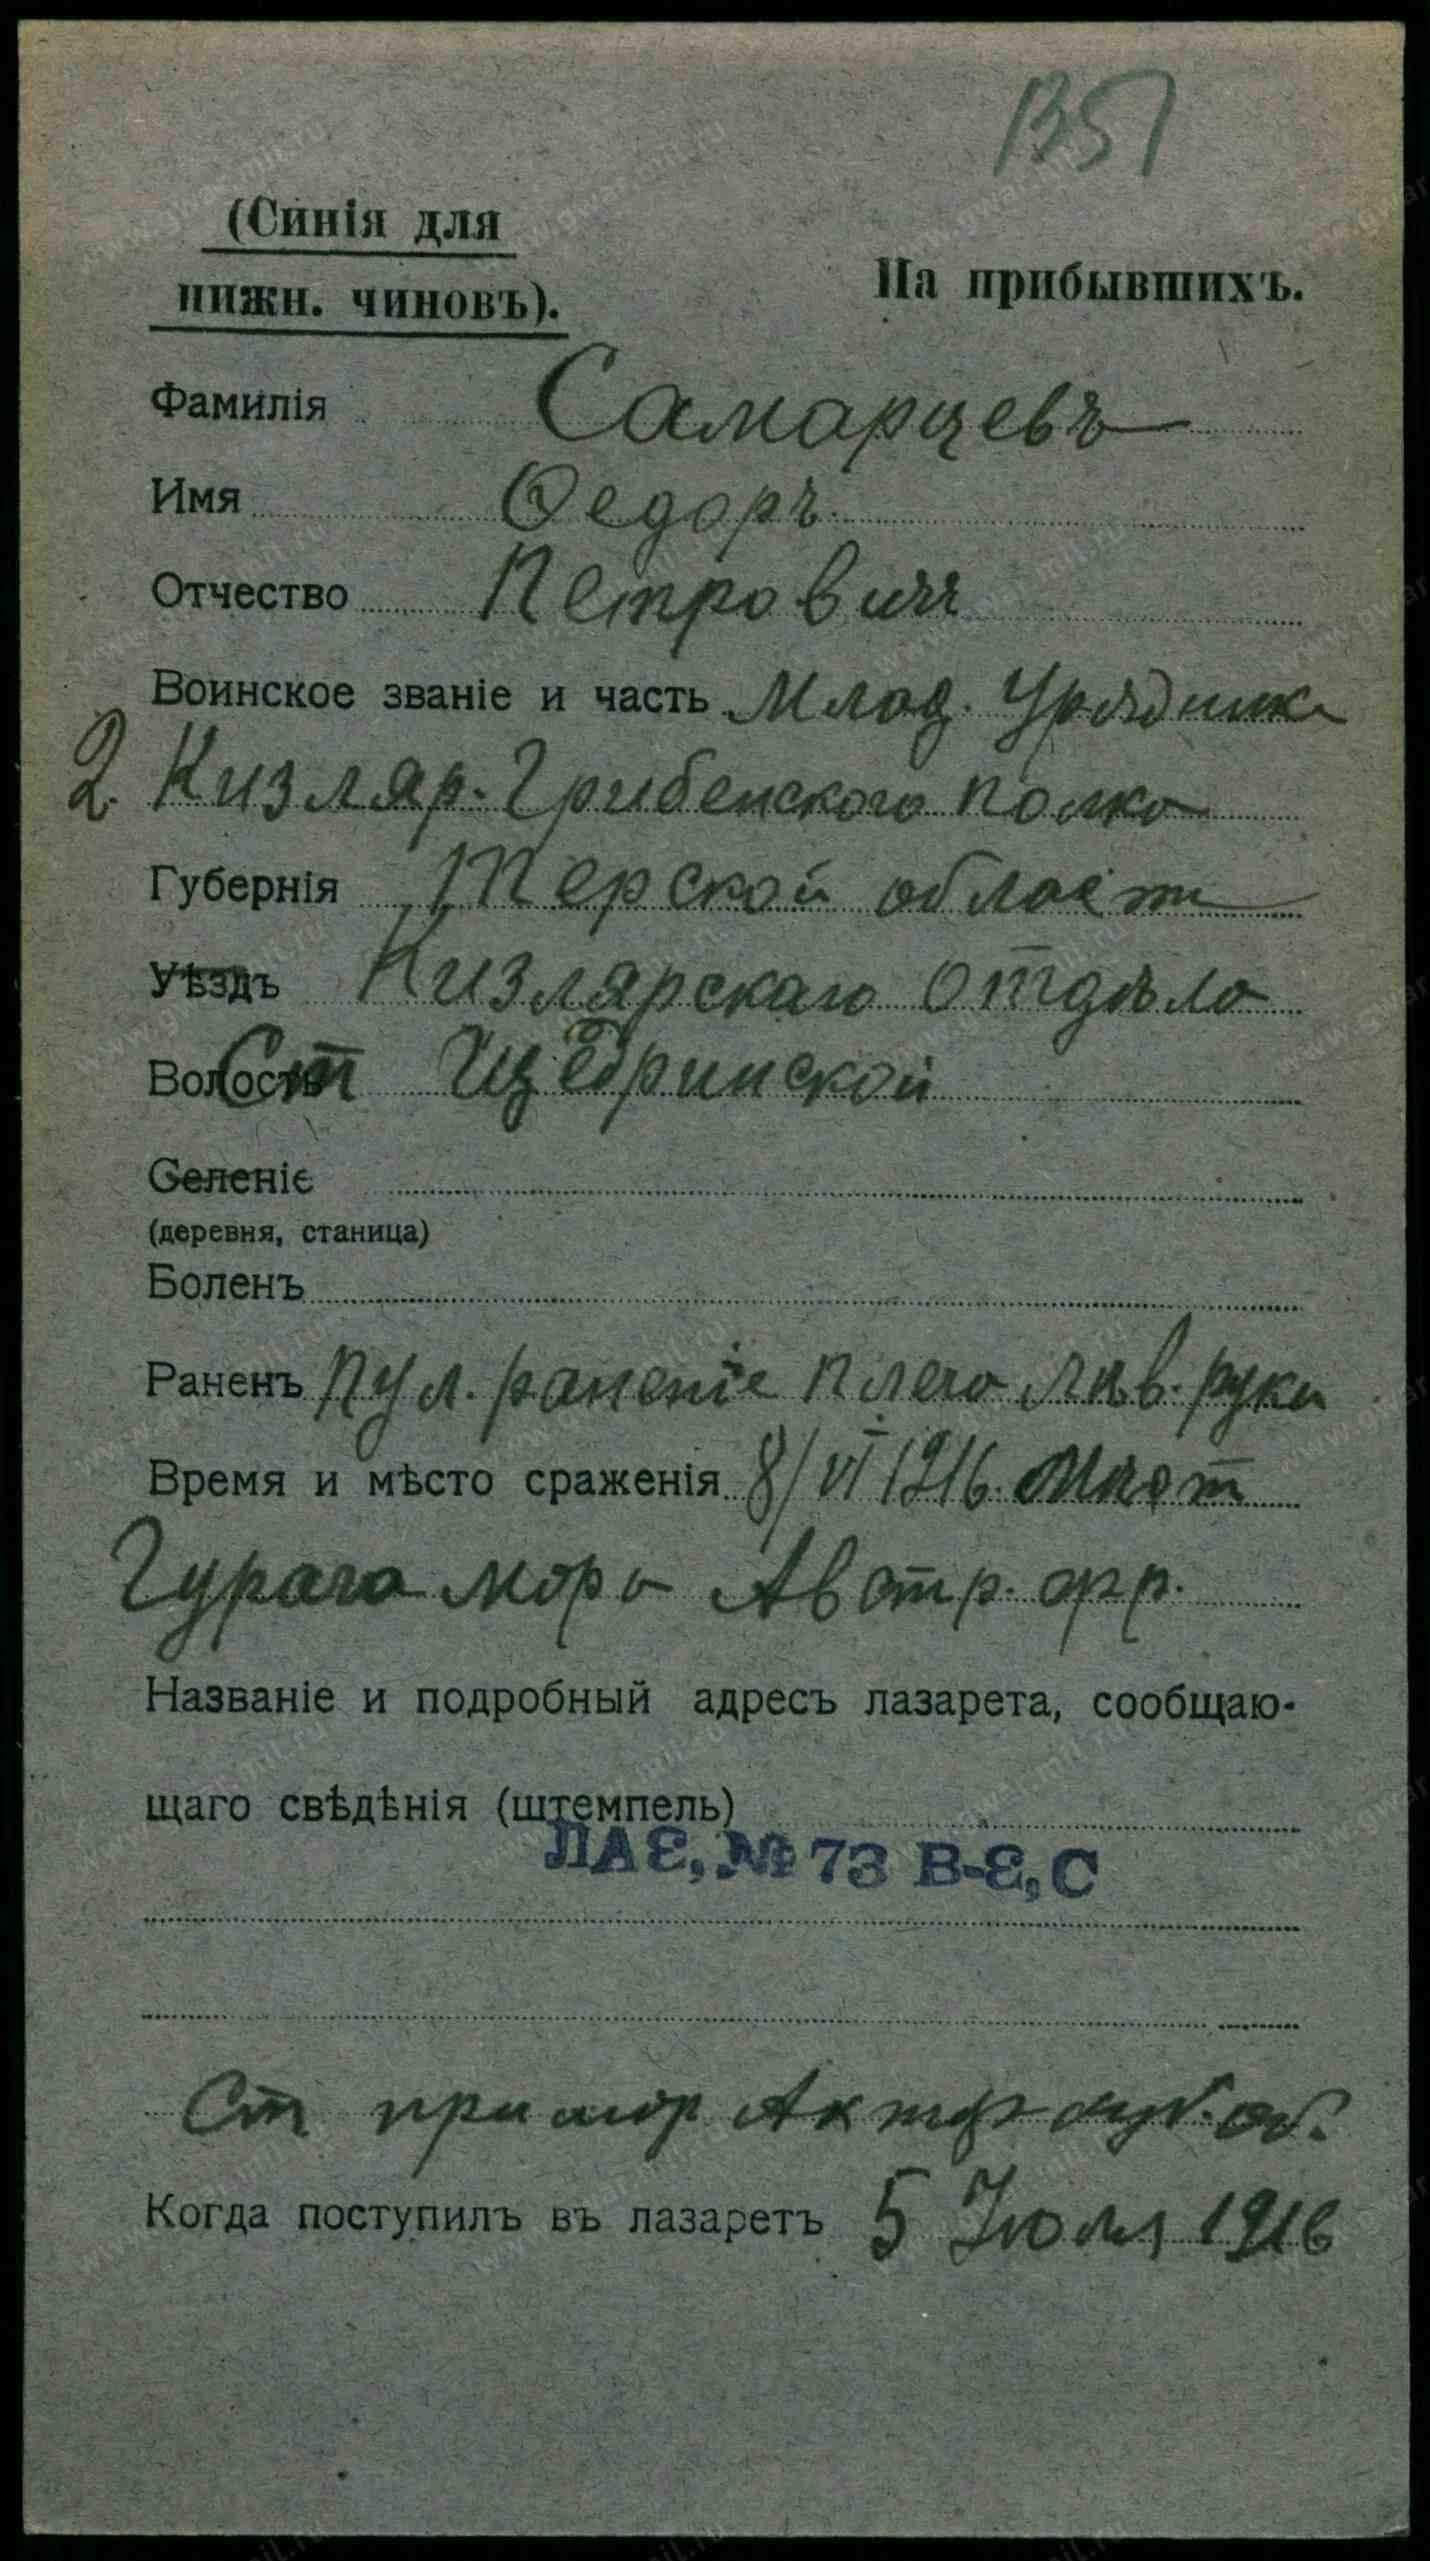 1351
(Синія для
нижн. чиновъ).
На прибывшихъ.
Фамилія Самарцевъ
Имя Ѳедоръ
Отчество Петровичъ
Воинское званіе и часть Млад. Урядник
2. Кизляр. Грибенского полка
Губернія Терской области
Уѣздъ Кизлярскаго отдѣла
Волость Ст Щедринской
Селеніе
(деревня, станица)
Боленъ
Раненъ Пул. раненіе плеча лѣв. руки
Время и мѣсто сраженія 8/VI 1916.
Австр.
Названіе и подробный адресъ лазарета, сообщаю-
щаго свѣдѣнія (штемпель)
ЛАЕ, № 73 В-Е, С
Ст
Когда поступилъ въ лазаретъ 5 Іюля 1916